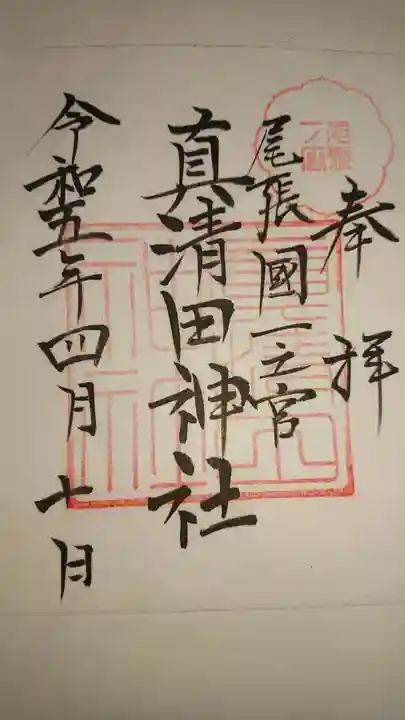 奉拝
尾張國一之宮
真清田神社
令和五年四月十日